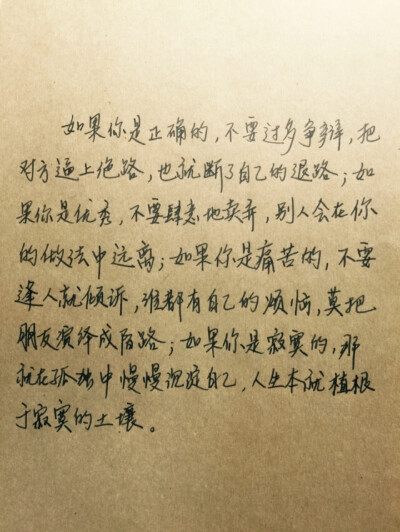 如果你是正确的，不要过多争辩，把
对方逼上绝路，也就断了自己的退路；如
果你是优秀，不要肆意地卖弄，别人会在你
的做法中远离；如果你是痛苦的，不要
逢人就倾诉，谁都有自己的烦恼，莫把
朋友演绎成陌路；如果你是寂寞的，那
就在孤独中慢慢沉淀自己，人生本就植根
于寂寞的土壤。